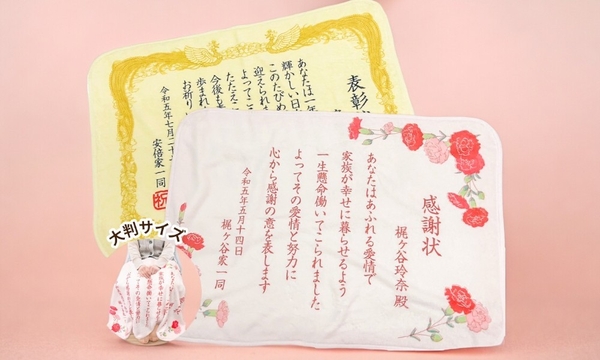 表彰
あなたは一年
輝かしい日
このたびめ
迎えられま
よってここ
たたえ
今後も
歩まれ
お祈り
令和五年七月二十
安倍家一同
感謝状
梶ヶ谷玲奈 殿
あなたはあふれる愛情で
家族が幸せに暮らせるよう
一生懸命働いてこられました
よってその愛情と努力に
心から感謝の意を表します
令和五年五月十四日
梶ヶ谷家一同
大判サイズ